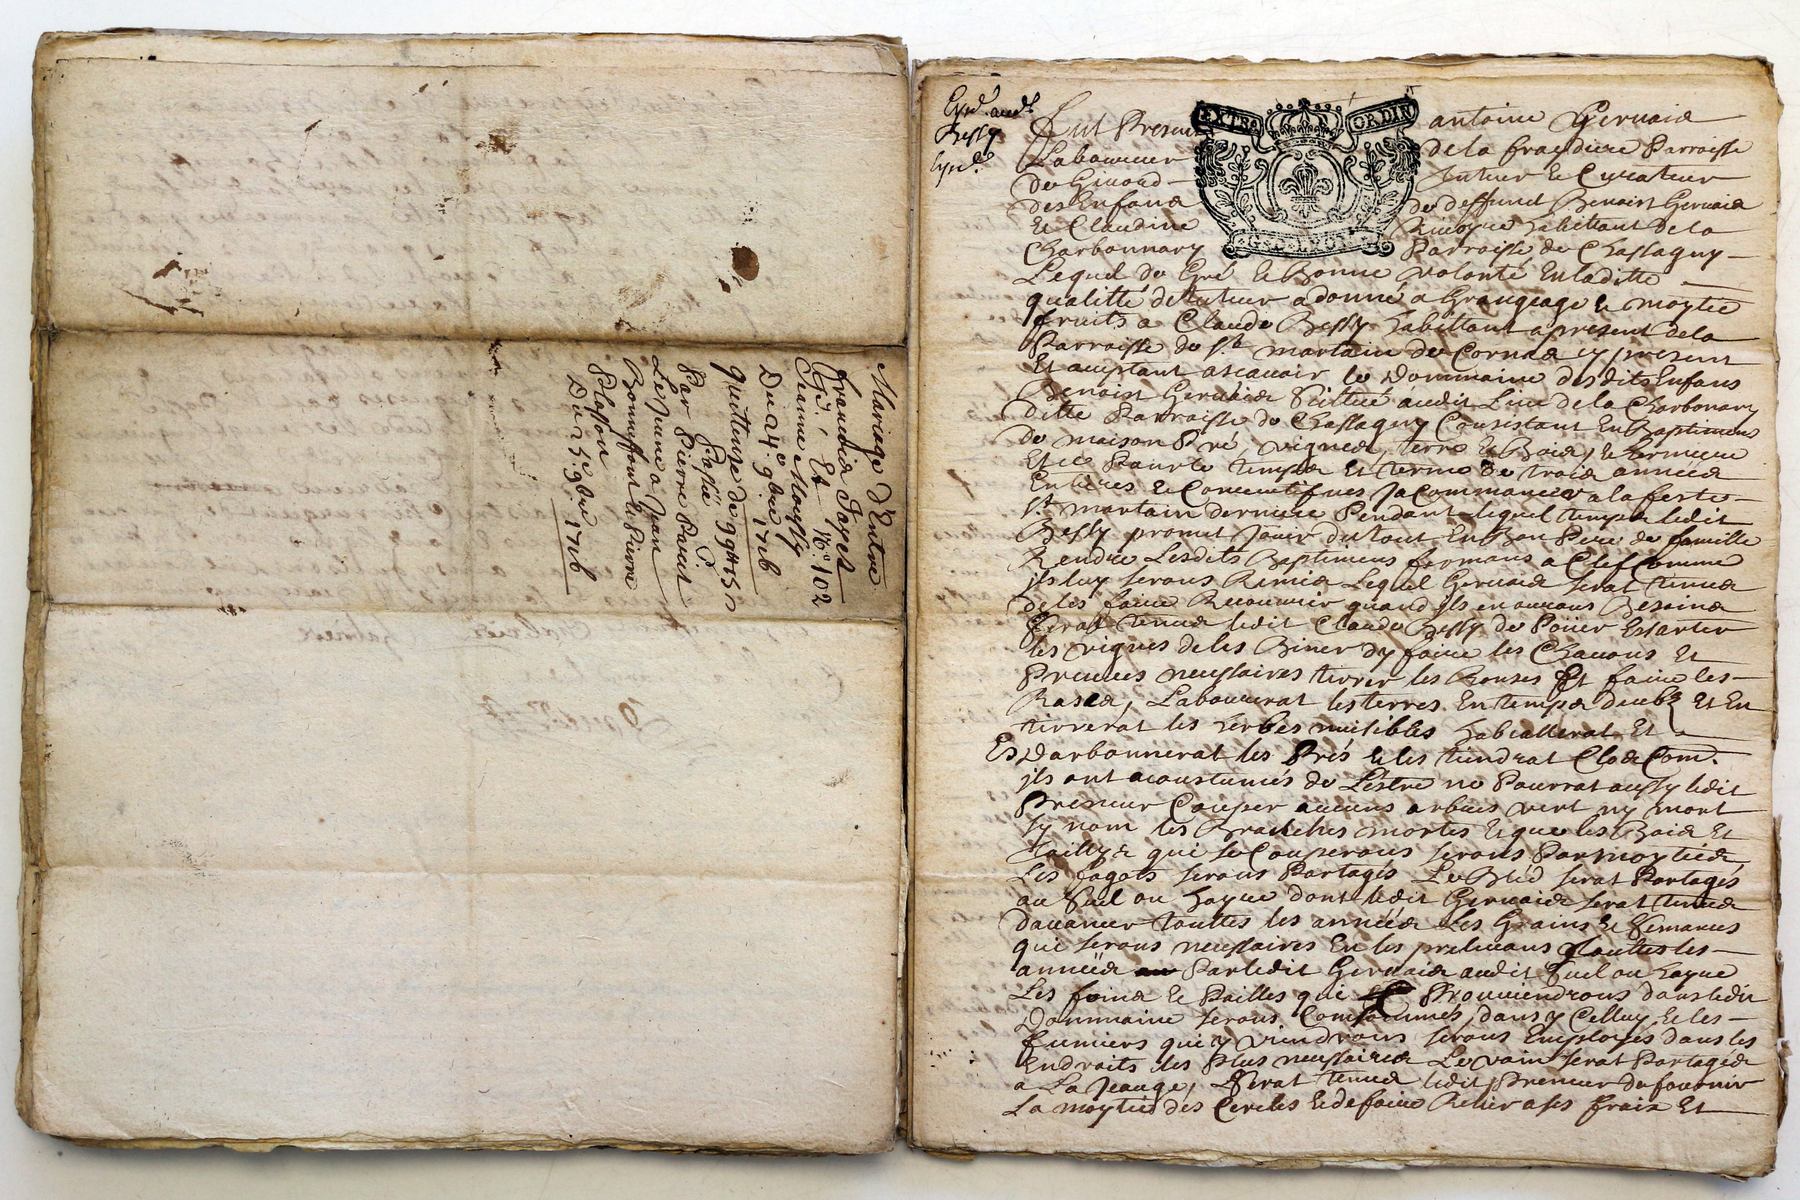 Mariage d'Entre
francois Jayet
Et
Jeanne Moussy
N.º 102
Du 24.e 9.bre 1716
Quittense de
Passée
Par Pierre
Le Jeune a Jean
Bonnessont le Pierre
Plasson
Du 25.e 9.bre 1716
Bessy
EXTRA ORDIN
G.D. LYON
fut Present antoine Gervais
Laboureur de la fraydiere Parroisse
de Givord Tuteur & Curateur
des Enfans de deffunct Benoist Gervais
Et Claudine habittant de la
Charbonnary Parroisse de Chassagny
Lequel de Gré & Bonne volonté En laditte
qualitté de tuteur a donné a Grangeage & moytié
fruits a Claude Bessy habittant a present de la
Parroisse de S.t martain de Cornas cy present
Et aceptant ascavoir le Dommaine desdits Enfans
Benoist Gervais Scittué audit Lieu de la Charbonary
ditte Parroisse de Chassagny Consistant En Baptimens
de maison Pré, vignes, terre & Bois, & hermeure
Et ce Pour le temps Et terme de trois années
Entieres & Consecutifves Ja Commancée a la feste
S.t martain derniere Pendant lequel temps ledit
Bessy promet Jouir du tout En Bon Pere de famille
Rendre Lesdits Baptimens fermans a Clef Comme
jls luy serons Remis Lequel Gervais serat tenus
de les faire Recouvrir quand jls en aurons Besoins
Serat tenus ledit Claude Bessy de Poüer Essarter
les vignes de les Biner dy faire les Chavons Et
Preuves necessaires tirrer les Ronses Et faire les
Rases, Labourerat les terres En temps deub Et En
tirrerat les herbes nuisibles Et
Darbonnerat les Prés & les tiendrat Clos Com.
jls ont acoustumés de Lestre ne Pourrat aussy ledit
Preneur Couper aucuns arbres vert ny mort
sy nom les Branches mortes Et que les Bois Et
taillys qui se Couperons serons Par moytiés
Les fagots serons Partagés Le Bled serat Partagés
au Suel ou hayue dont ledit Gervais serat tenus
davancer touttes les années Les Grains & Semances
qui serons necessaires En les prelevans touttes les
années Par ledit Gervais audit Suel ou hayue
Les foins & Pailles qui Prouviendrons dans ledit
Dommaine serons Consommés, dans y Celluy & les
fumiers quy viendrons serons Employés dans les
Endroits les Plus necessaires Le vain serat Partagés
a La Jeauge, Serat tenus ledit Preneur de fournir
La moytié des Cercles & de faire Relier a ses frais Et